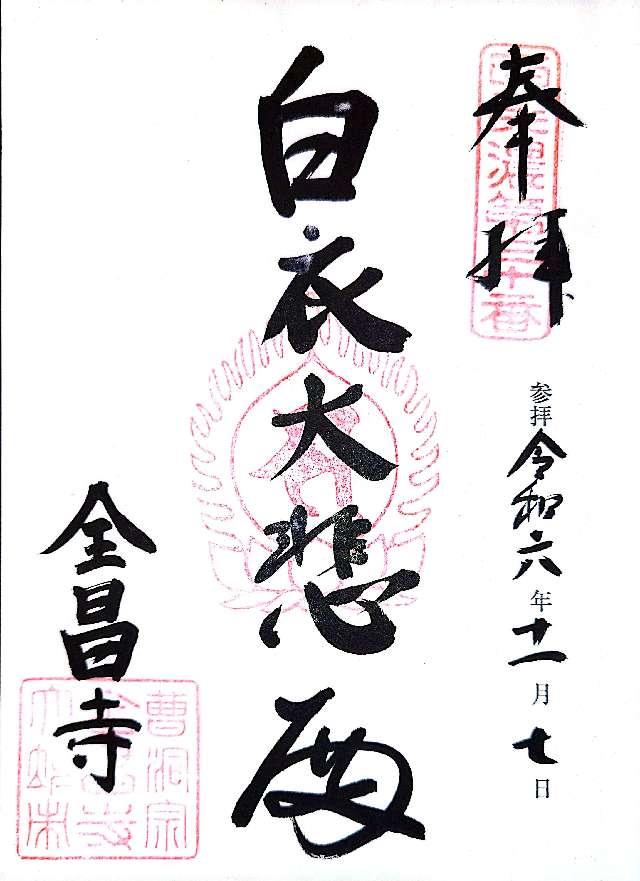 奉拝
参拝 令和六年十一月七日
白衣大悲殿
全昌寺
曹洞宗